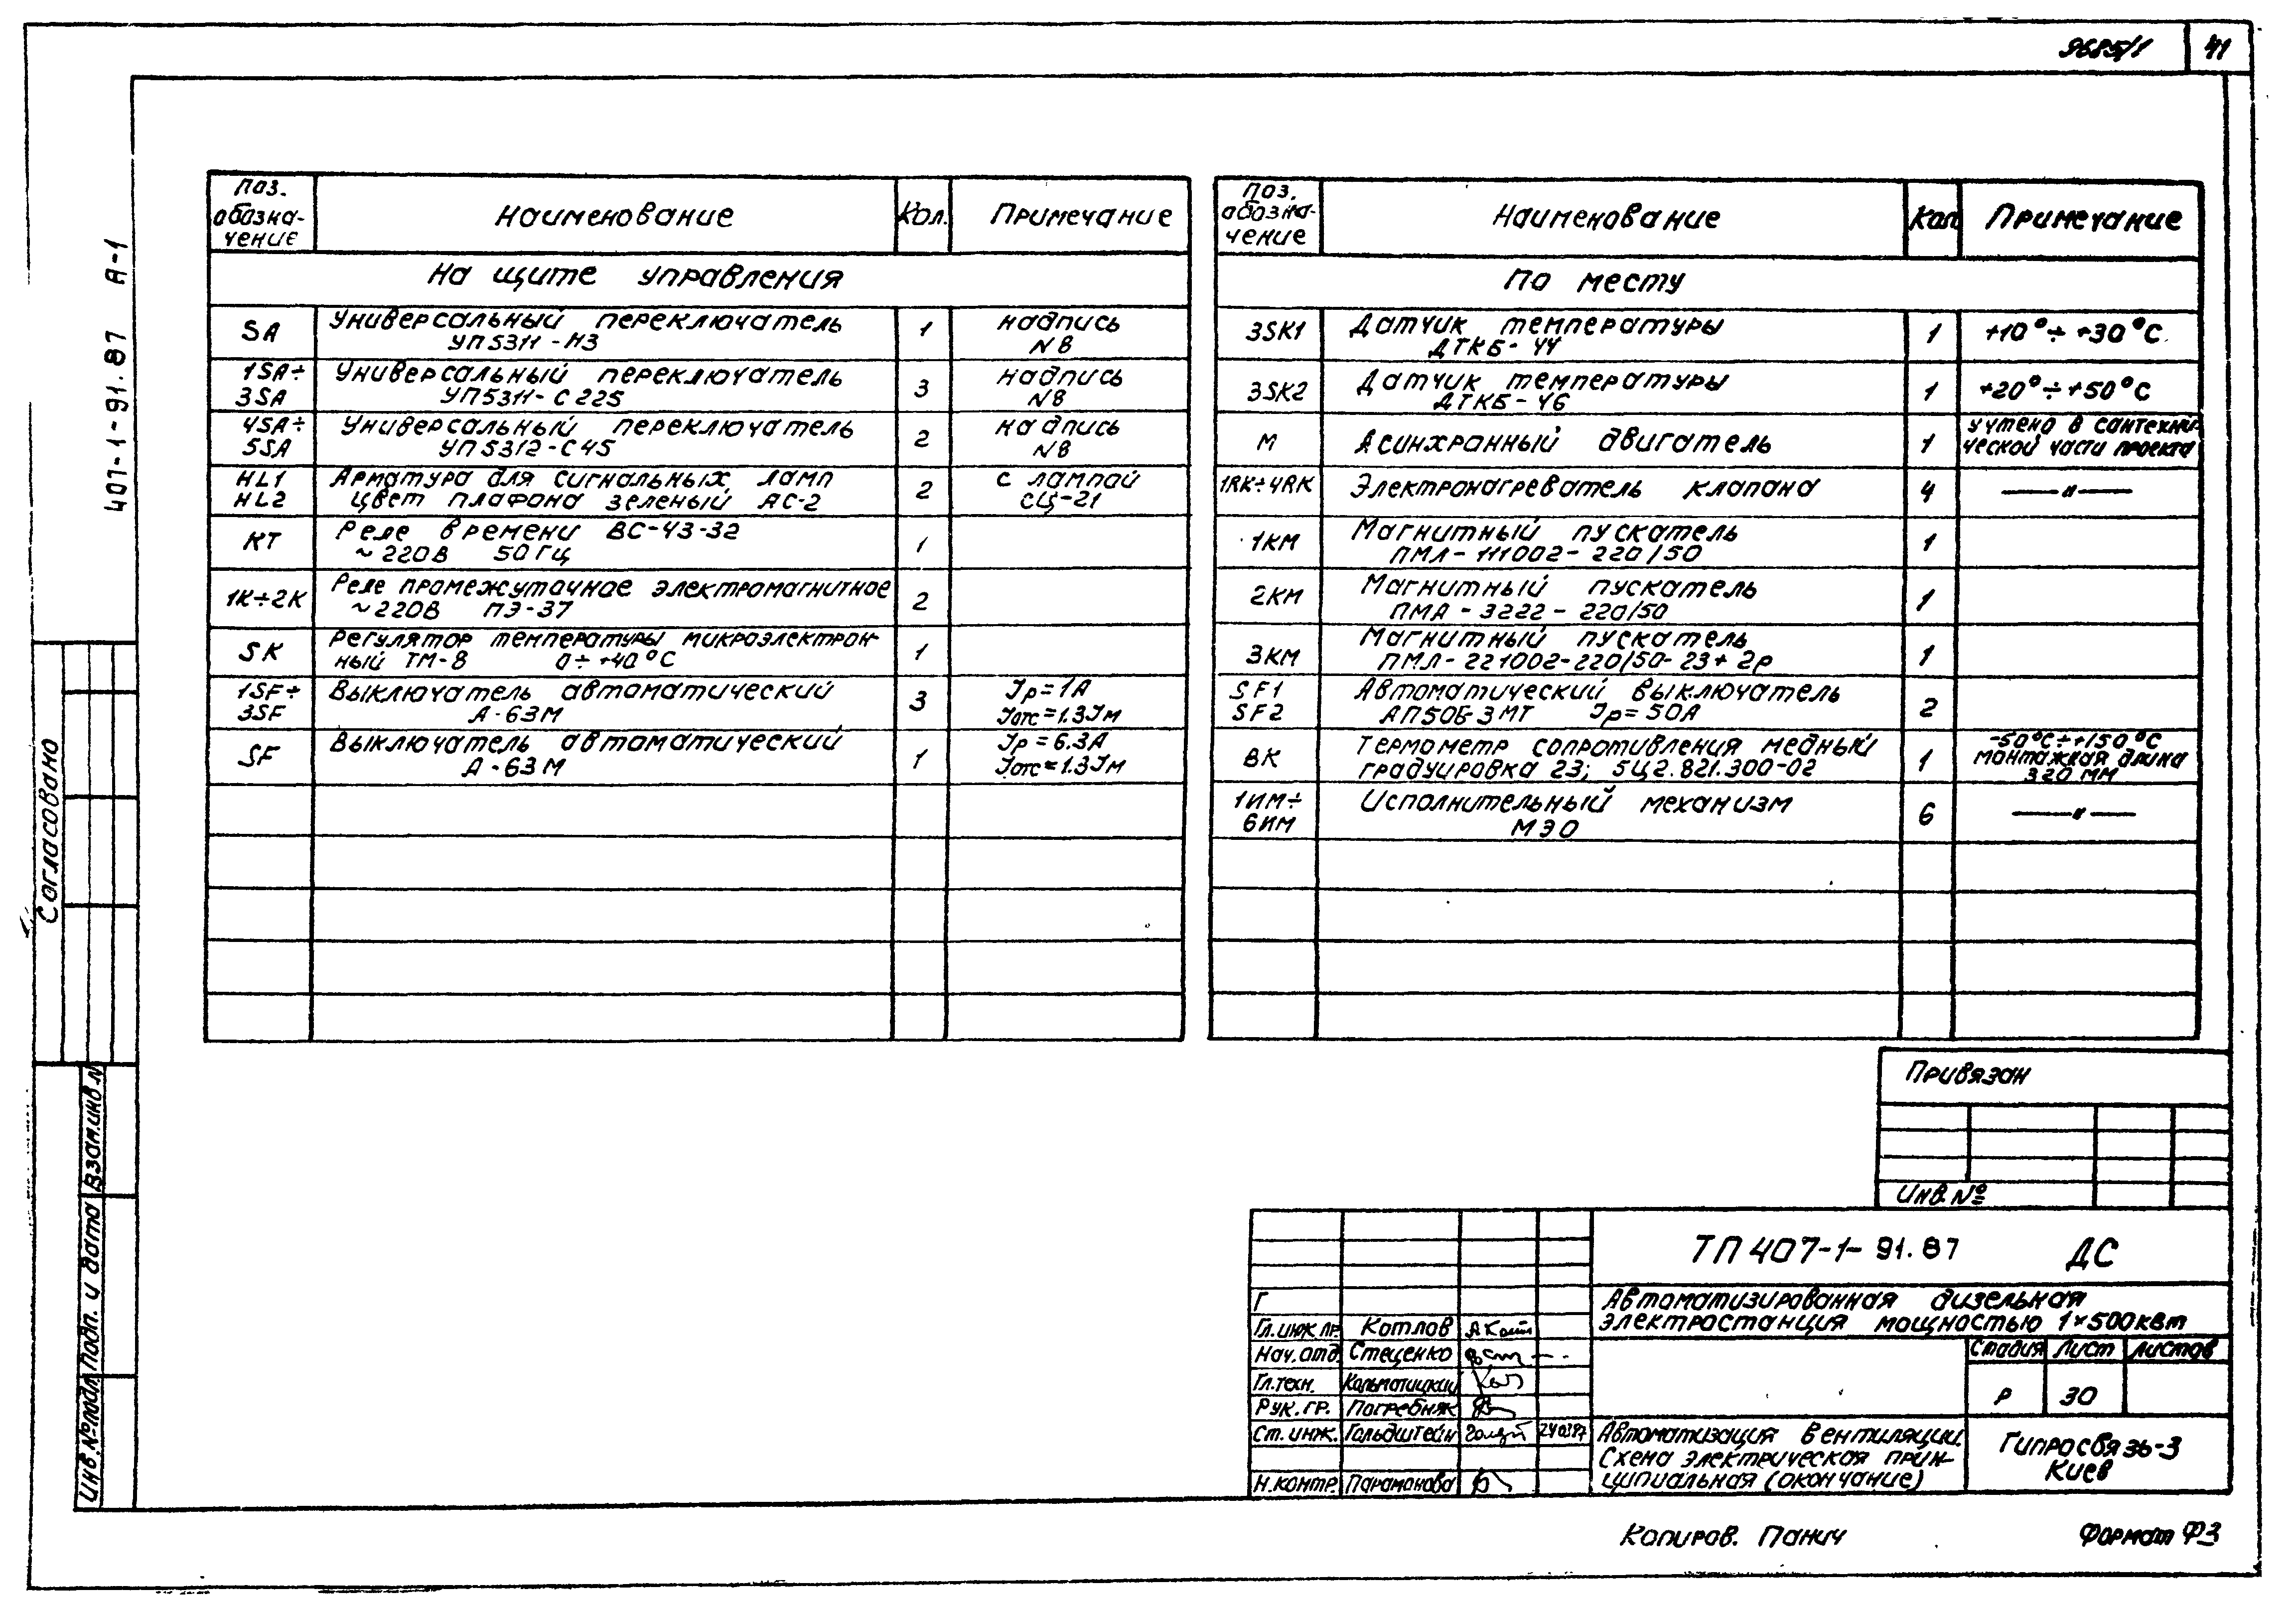 9685/1 41
407-1-91.87 А-1
Поз. обозна-чение Наименование Кол. Примечание
На щите управления
SA Универсальный переключатель 1 надпись
УП5311-Н3 N8
1SA÷ Универсальный переключатель 3 надпись
3SA УП5311-С225 N8
4SA÷ Универсальный переключатель 2 надпись
5SA УП5312-С45 N8
HL1 Арматура для сигнальных ламп 2 с лампой
HL2 цвет плафона зеленый АС-2 СЦ-21
КТ Реле времени ВС-43-32 1
~220В 50Гц
1К÷2К Реле промежуточное электромагнитное 2
~220В ПЭ-37
SK Регулятор температуры микроэлектрон- 1
ный ТМ-8 0÷+40°С
1SF÷ Выключатель автоматический 3 Jр=1А
3SF А-63М Jотс=1.3Jм
SF Выключатель автоматический 1 Jр=6.3А
А-63М Jотс=1.3Jм
Поз. обозна-чение Наименование Кол Примечание
По месту
3SK1 Датчик температуры 1 +10°÷+30°С
ДТКБ-44
3SK2 Датчик температуры 1 +20°÷+50°С
ДТКБ-46
М Асинхронный двигатель 1 учтено в сантехни-
ческой части проекта
1RK÷4RK Электронагреватель клапана 4 —"—
1КМ Магнитный пускатель 1
ПМЛ-111002-220/50
2КМ Магнитный пускатель 1
ПМА-3222-220/50
3КМ Магнитный пускатель 1
ПМЛ-221002-220/50-23+2р
SF1 Автоматический выключатель 2
SF2 АП50Б3МТ Jр=50А
ВК Термометр сопротивления медный 1 -50°С÷+150°С
градуировка 23; 5Ц2.821.300-02 монтажная длина
320 мм
1ИМ÷ Исполнительный механизм 6 —"—
6ИМ МЭО
Согласовано
Взам.инв.N
Подп. и дата
Инв.№подл.
Привязан
Инв.№
ТП 407-1-91.87 ДС
Г
Автоматизированная дизельная
электростанция мощностью 1×500квт
Гл.инж.пр. Котлов
Нач.отд. Стеценко
Гл.техн. Кальматицкий
Рук.гр. Погребняк
Ст.инж. Гольдштейн 240387
Н.контр. Парамонова
Стадия Лист Листов
Р 30
Автоматизация вентиляции.
Схема электрическая прин-
ципиальная (окончание)
Гипросвязь-3
Киев
Копиров. Панич Формат Ф3